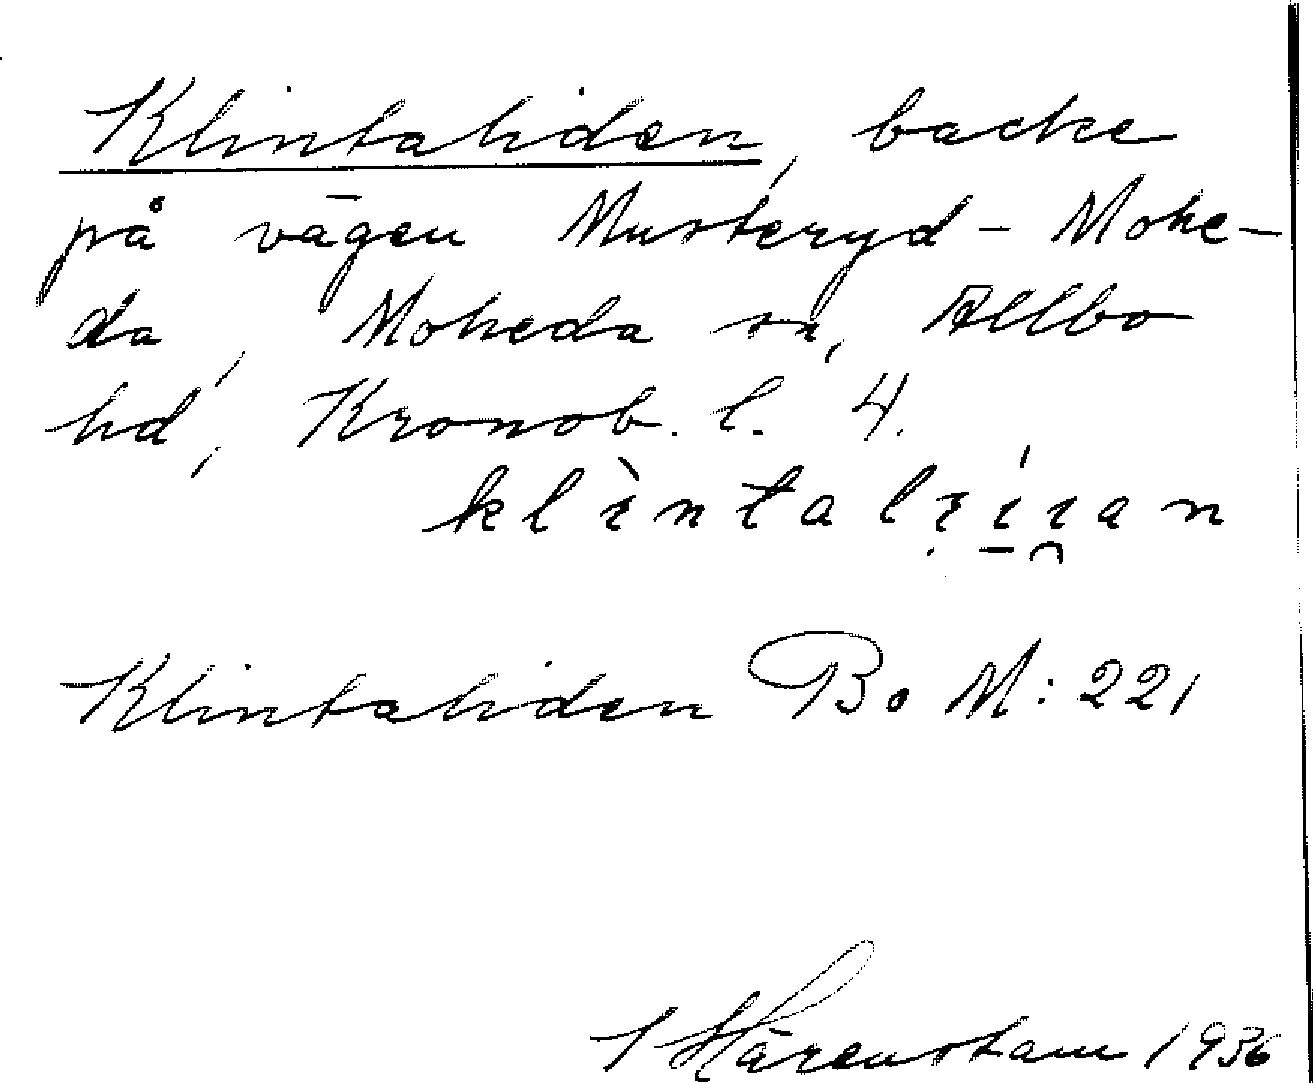 Klintaliden, backe
på vägen Musteryd - Mohe-
da, Moheda sn, Allbo
hd, Kronob. l. 4.
Klintaliden Bo M: 221
Härenstam 1936